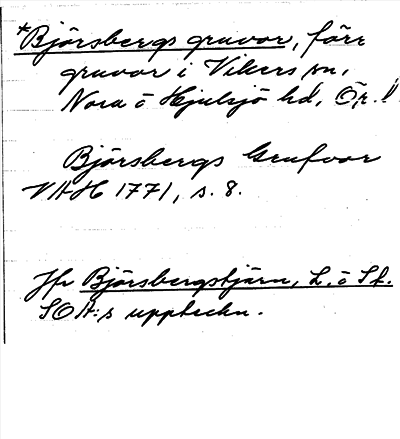 *Björsbergs gruvor, förr
gruvor i Vikers sn,
Nora o Hjulsjö hd, Ör. l.
Björsbergs Grufvor
VAH 1771, s. 8.
Jfr Björsbergstjärn, L. o Sf.
SOA:s uppteckn.